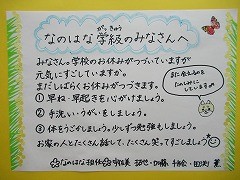 なのはな学級のみなさんへ
がっきゅう
みなさん。学校のお休みがつづいていますが
元気にすごしていますか。
まだしばらくお休みがつづきます。
①早ね・早起きを心がけましょう。
②手洗い・うがいをしましょう。
③体をうごかしましょう。少しずつ勉強もしましょう。
お家の人とたくさん話して、たくさん笑ってすごしましょう
また会えるのを
たのしみに
しています
なのはな担任